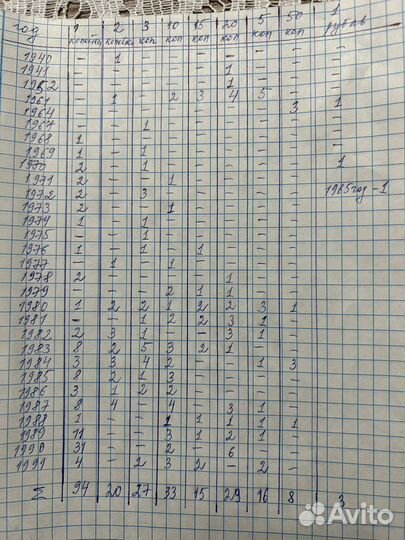 год 1 2 3 10 15 20 5 50 1
копейка копейки коп коп коп коп коп коп рубль
1940 – 1 – – – – – –
1941 – – – – – 1 – –
1952 – – – – – 1 – –
1961 – 1 – 2 3 4 5 –
1964 – – – – – – – 3 1
1967 – – 1 – – – – –
1968 1 – – – – – – –
1969 1 – 1 – – – – –
1970 2 – 1 – – – – – 1
1971 2 – – 1 – – – –
1972 2 – 3 – – – – – 1965год-1
1973 2 – – 1 – – – –
1974 1 – 1 – – – – –
1975 – – 1 – – – – –
1976 1 – 1 – 1 – – –
1977 – 1 – 1 – – – –
1978 2 – – – – 1 – –
1979 – – – 2 1 1 – –
1980 1 2 2 1 2 2 3 1
1981 – – 1 2 2 3 1 –
1982 2 3 1 – – 3 1 –
1983 8 2 5 3 2 1 – –
1984 3 3 4 2 – – 1 3
1985 8 2 1 3 – – – –
1986 3 1 2 2 – – – –
1987 8 4 – 4 – 3 1 –
1988 1 – – 1 1 1 1 1
1989 11 – – 3 1 2 1 –
1990 31 – – 2 – 6 – –
1991 4 – 2 3 2 – 2 –
Σ 94 20 27 33 15 29 16 8 3
Avito